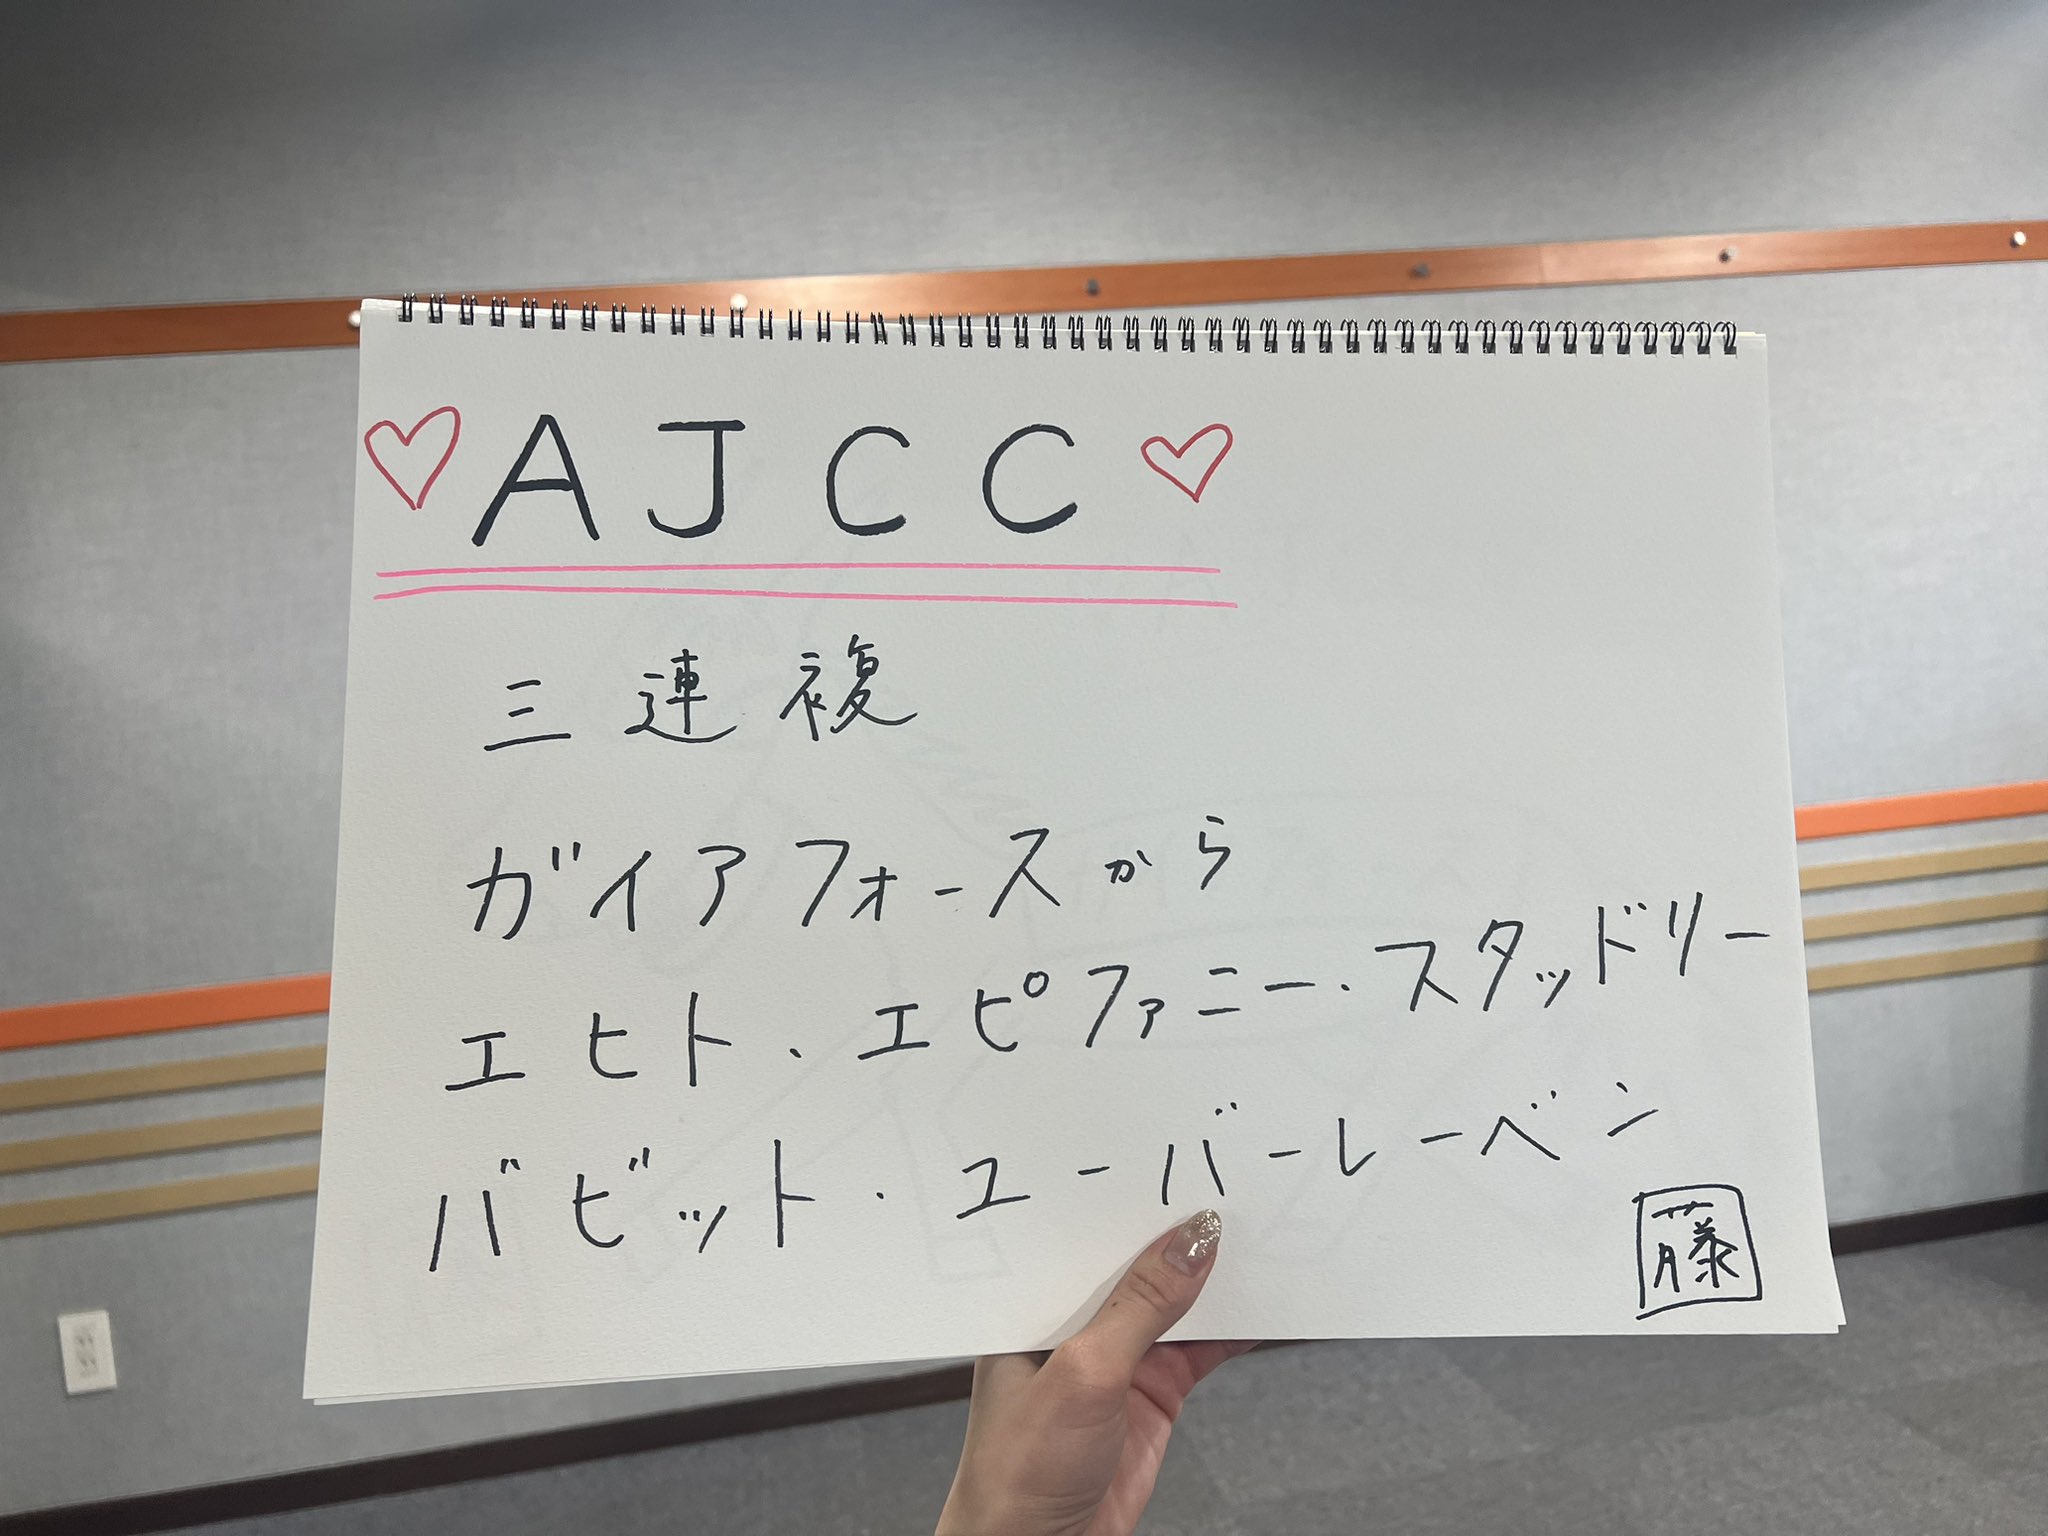 ♡AJCC♡
三連複
ガイアフォースから
エヒト・エピファニー・スタッドリー
バビット・ユーバーレーベン
藤